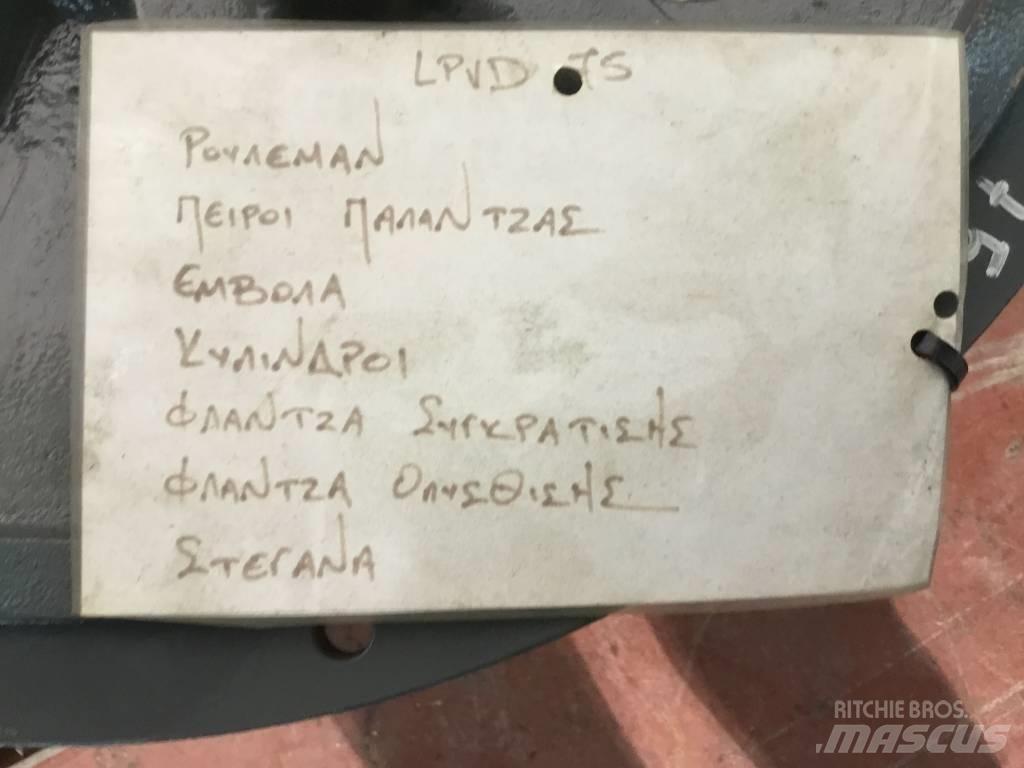 LPVD 75
ΡΟΥΛΕΜΑΝ
ΠΕΙΡΟΙ ΠΑΛΑΝΤΖΑΣ
ΕΜΒΟΛΑ
ΚΥΛΙΝΔΡΟΙ
ΦΛΑΝΤΖΑ ΣΥΓΚΡΑΤΙΣΗΣ
ΦΛΑΝΤΖΑ ΟΛΥΣΘΙΣΗΣ
ΣΤΕΓΑΝΑ
RITCHIE BROS.
MASCUS